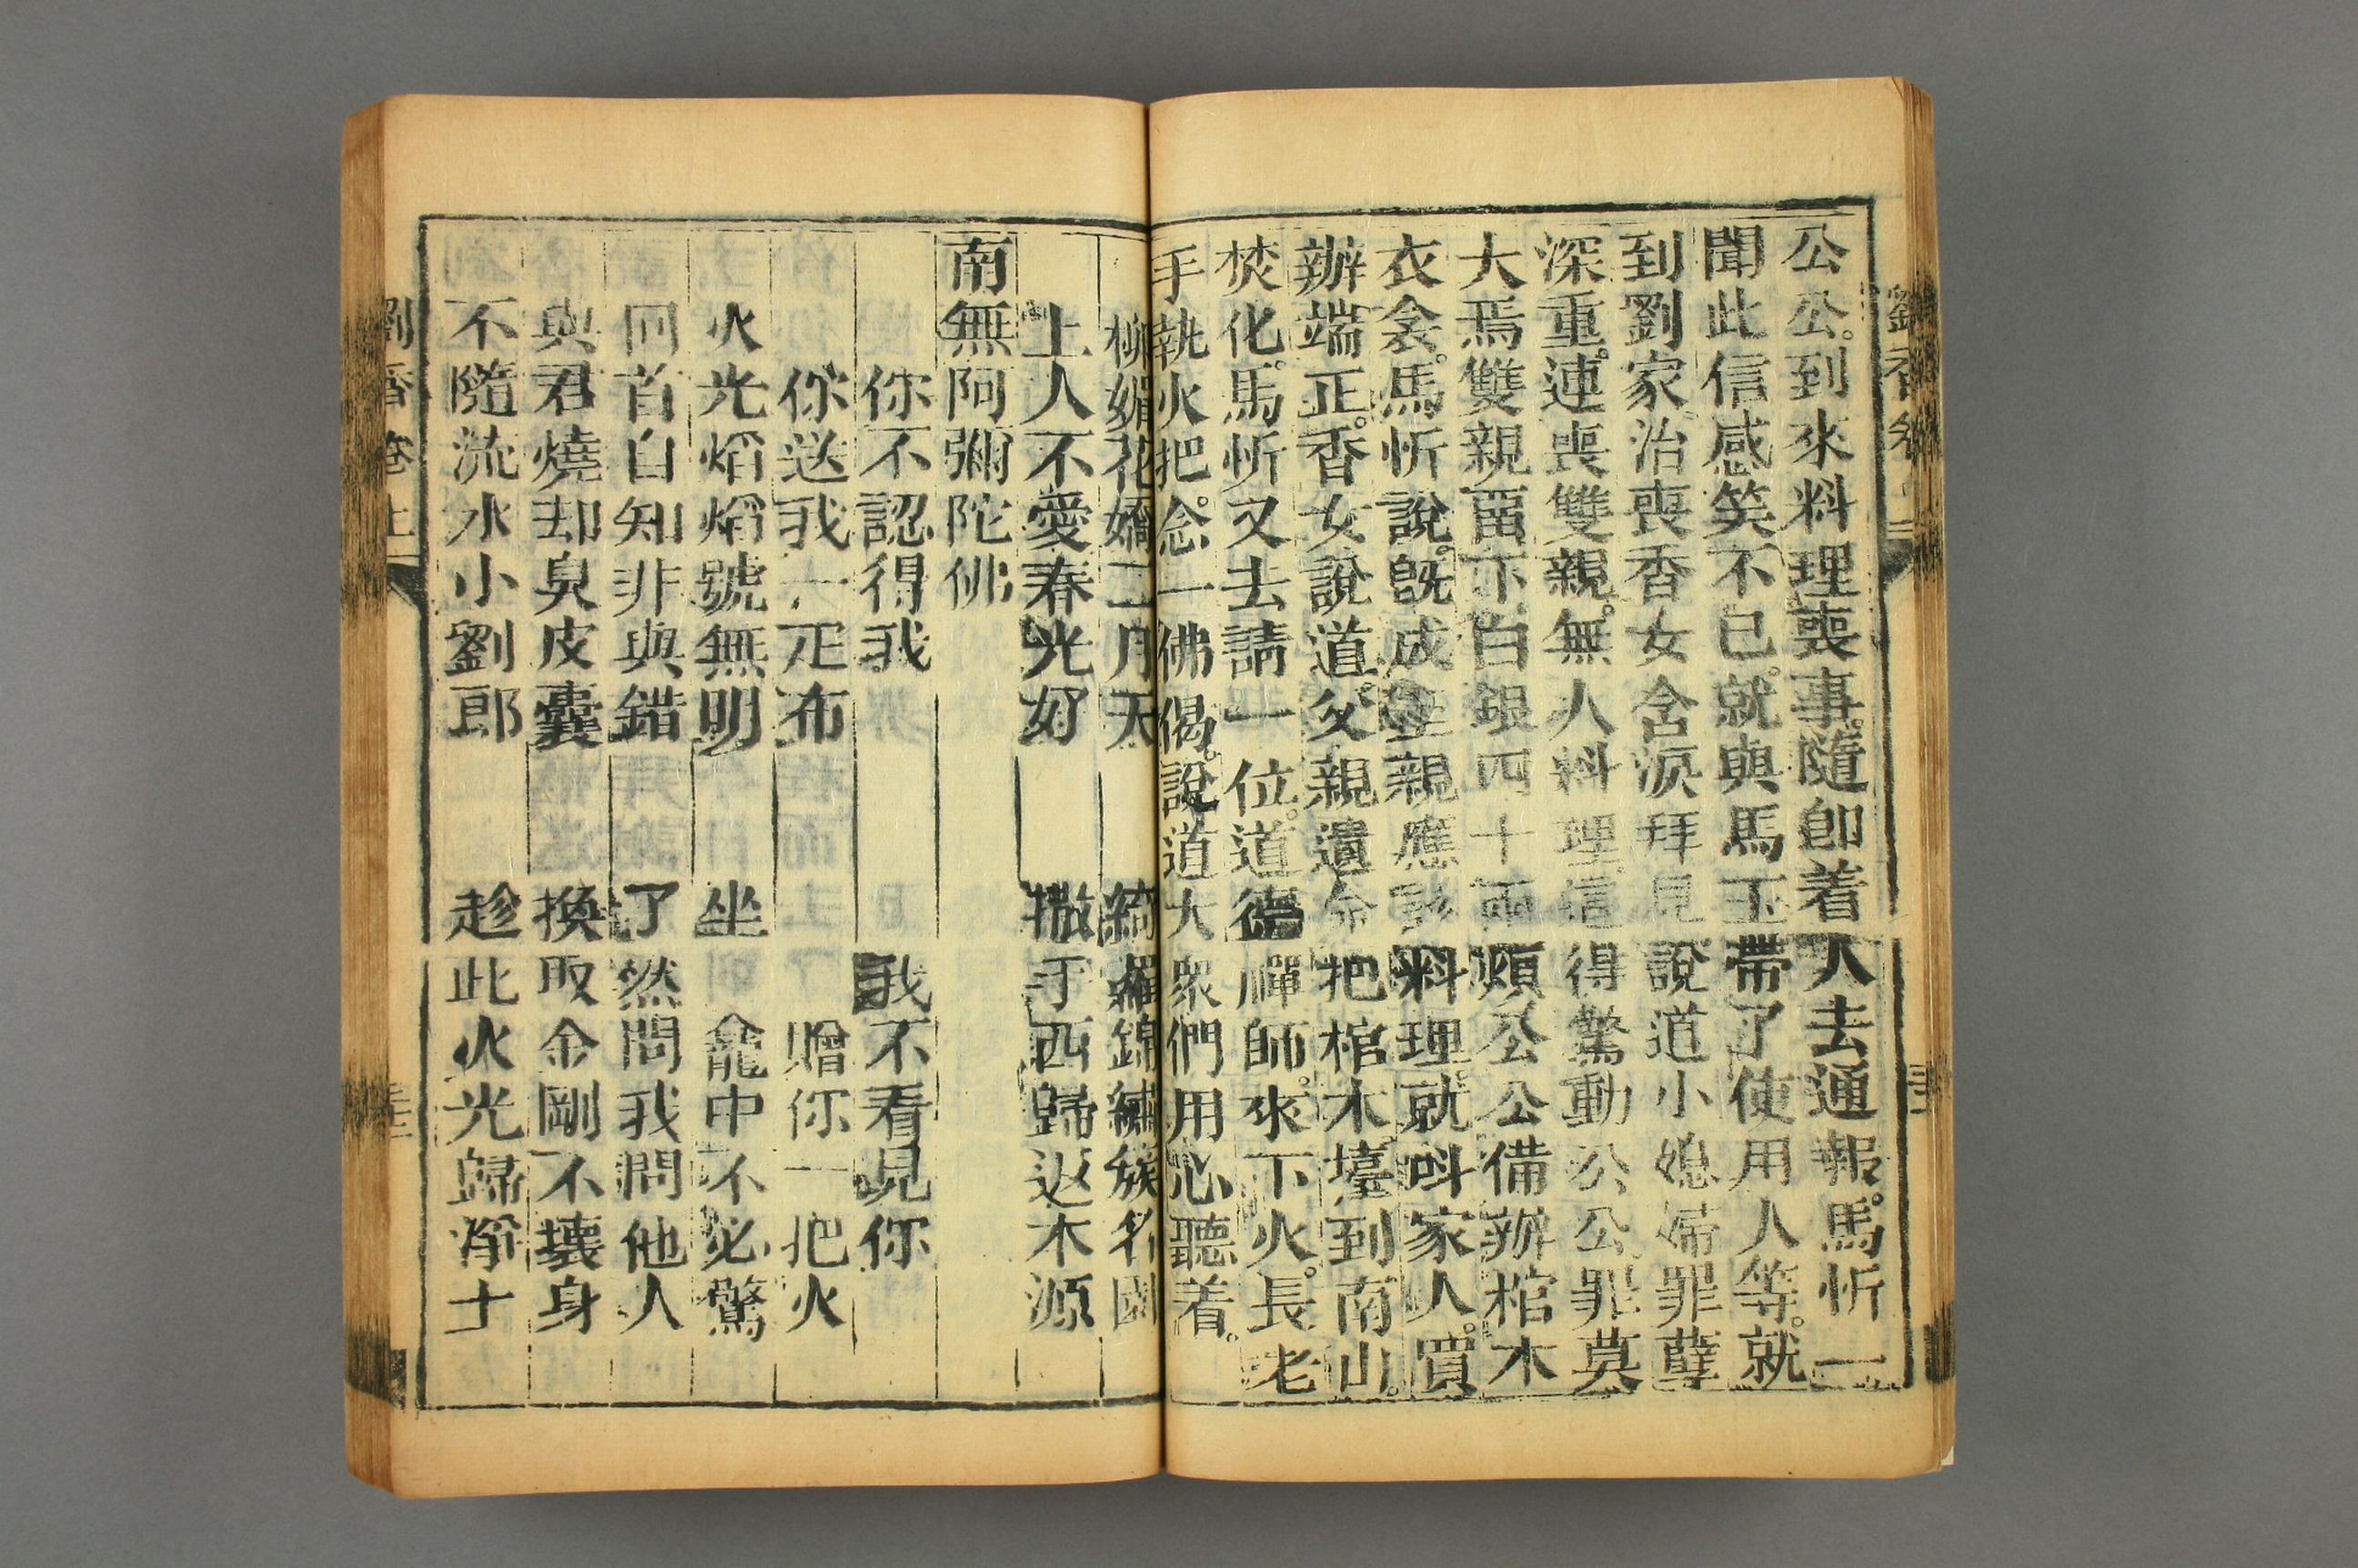 公公。到來料理喪事。隨卽着人去通報。馬忻一
聞此信感笑不已。就與馬玉帶了使用人等。就
到劉家。治喪香女含淚拜見說道小媳婦罪孽
深重。連喪雙親。無人料理。信得驚動公公罪莫
大焉雙親畱下白銀四十兩煩公公備辦棺木
衣衾。馬忻說。旣成親應該料理。就呌家人。買
辦端正。香女說道。父親遺命把棺木擡到南山。
焚化。馬忻又去請一位。道德禪師。來下火。長老
手執火把。念一佛偈。說道大衆們用心聽着。
柳媚花嬌二月天 綺羅錦繡簇名園
上人不愛春光好 撒手西歸返本源
南無阿彌陀佛
你不認得我 我不看見你
你送我一疋布 贈你一把火
火光焰焰號無明 坐龕中不必驚
回首自知非與錯 了然問我問他人
與君燒却臭皮囊 換取金剛不壞身
不隨流水小劉郎 趁此火光歸淨土
劉香卷上